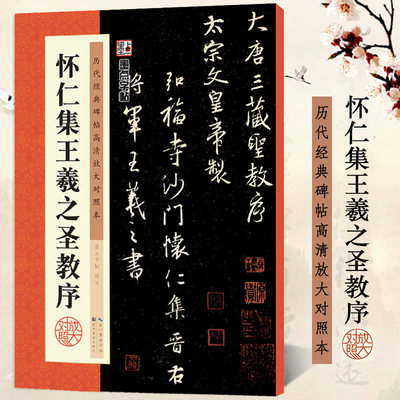 怀仁集王羲之圣教序
历代经典碑帖高清放大对照本
放大
对照
墨点字帖
大唐三藏聖教序
太宗文皇帝製
弘福寺沙門懷仁集晉右
將軍王羲之書
怀仁集王羲之圣教序
历代经典碑帖高清放大对照本
放大
对照